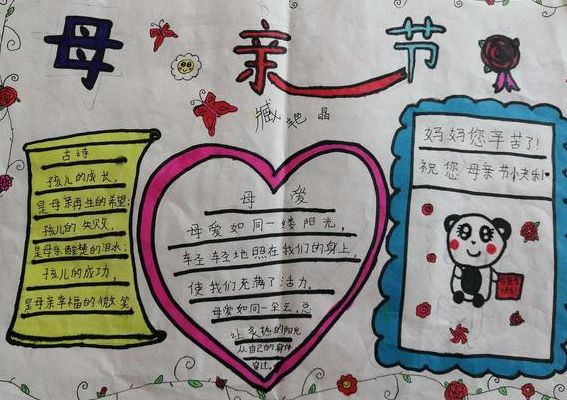 母亲节
臧艳晶
古诗
孩儿的成长,
是母亲再生的希望;
孩儿的失败,
是母亲酸楚的泪水;
孩儿的成功,
是母亲幸福的微笑
母爱
母爱如同一缕阳光,
轻轻地照在我们的身上,
使我们充满了活力.
母爱如同一朵云,总
让炙热的阳光
从自己的身体
穿过.
妈妈您辛苦了!
祝您母亲节快乐!